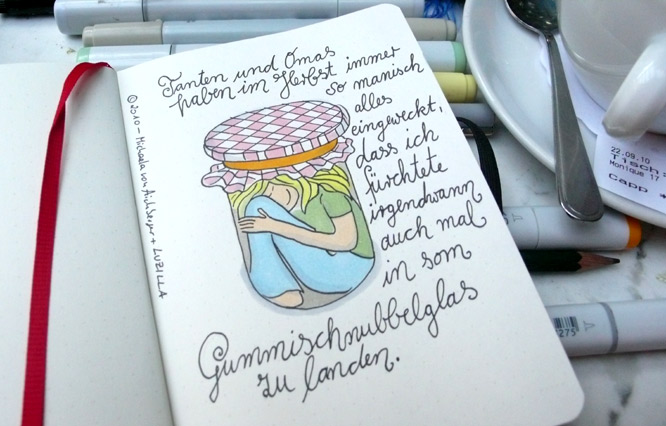 Tanten und Omas
haben im Herbst immer
so manisch
alles
eingeweckt,
dass ich
fürchtete
irgendwann
auch mal
in som
Gummischnubbelglas
zu landen.
©2010 - Michaela von Aichberger + LUZILLA
22.09.10
Tisch
Monique 17
Capp
275